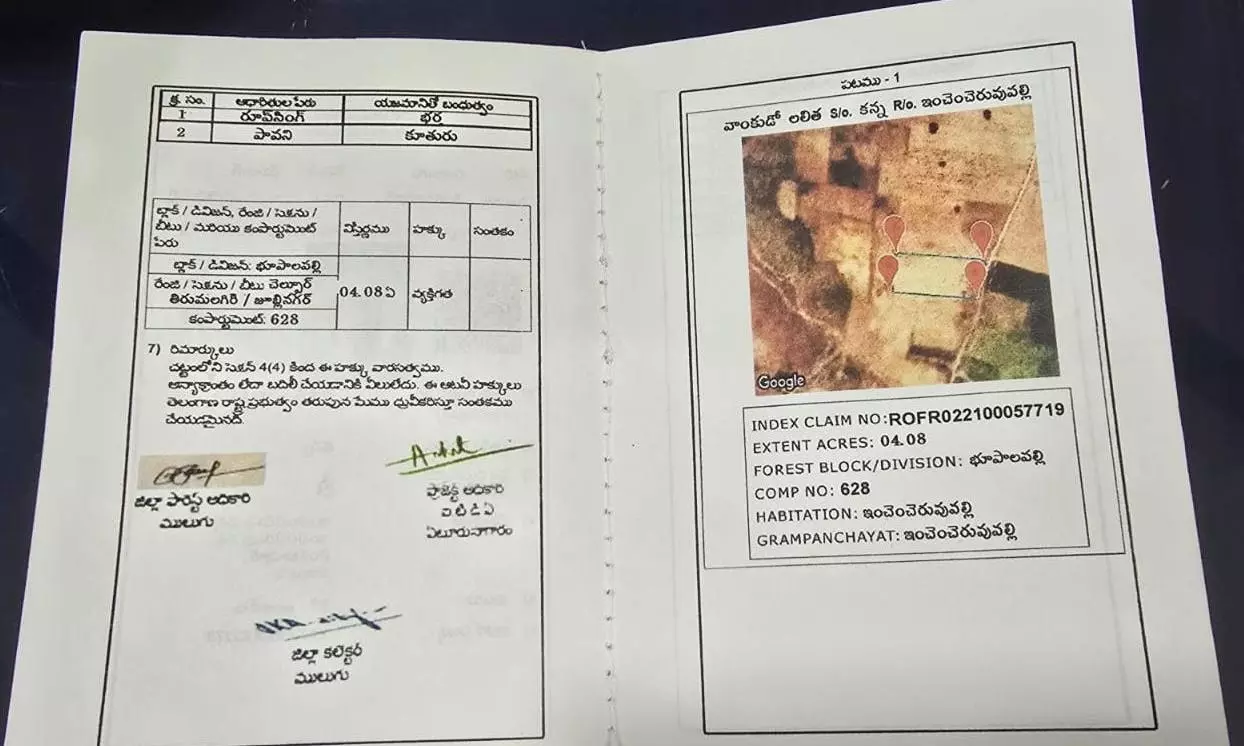 క్ర. సం. ఆధారితుల పేరు యజమానితో బంధుత్వం
1 రూప్‌సింగ్ భర్త
2 పావని కూతురు
బ్లాక్ / డివిజన్, రేంజి / సెక్షను / బీటు / మరియు కంపార్టుమెంట్ పేరు
విస్తీర్ణము
హక్కు
సంతకం
బ్లాక్ / డివిజన్: భూపాలపల్లి
రేంజి / సెక్షను / బీటు చెల్పూర్
తిరుమలగిరి / జూల్లినగర్
04.08ఏ
వ్యక్తిగత
కంపార్టుమెంట్: 628
7) రిమార్కులు
చట్టంలోని సెక్షన్ 4(4) కింద ఈ హక్కు వారసత్వము.
అన్యాక్రాంతం లేదా బదిలీ చేయడానికి వీలులేదు. ఈ అటవీ హక్కులు
తెలంగాణ రాష్ట్ర ప్రభుత్వం తరుపున మేము ధ్రువీకరిస్తూ సంతకము
చేయడమైనది.
జిల్లా ఫారెస్ట్ అధికారి
ములుగు
ప్రాజెక్ట్ అధికారి
ఐ టి డి ఏ
ఏటూరునాగారం
జిల్లా కలెక్టర్
ములుగు
పటము - 1
వాంకుడో లలిత S/o. కన్న R/o. ఇంచెంచెరువుపల్లి
Google
INDEX CLAIM NO:ROFR022100057719
EXTENT ACRES: 04.08
FOREST BLOCK/DIVISION: భూపాలపల్లి
COMP NO: 628
HABITATION: ఇంచెంచెరువుపల్లి
GRAMPANCHAYAT: ఇంచెంచెరువుపల్లి